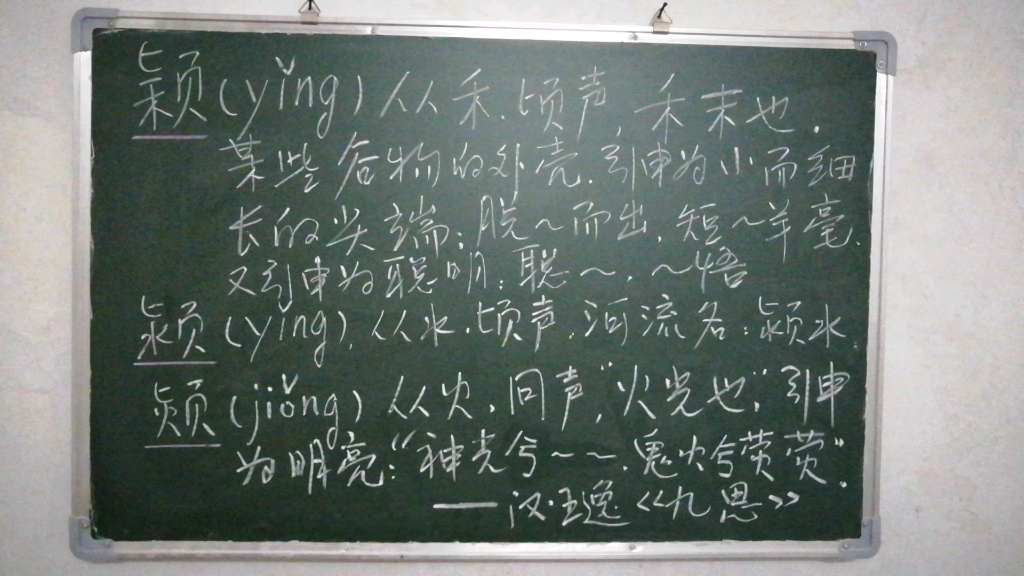 颖(yǐng)从禾.顷声,禾末也.
某些谷物的外壳.引申为小而细
长的尖端:脱~而出,短~羊毫.
又引申为聪明:聪~.~悟
颍(yǐng),从水.顷声.河流名:颍水
颎(jiǒng)从火.同声,"火光也";引申
为明亮:"神光兮~~.鬼火兮荧荧".
——汉·王逸《九思》